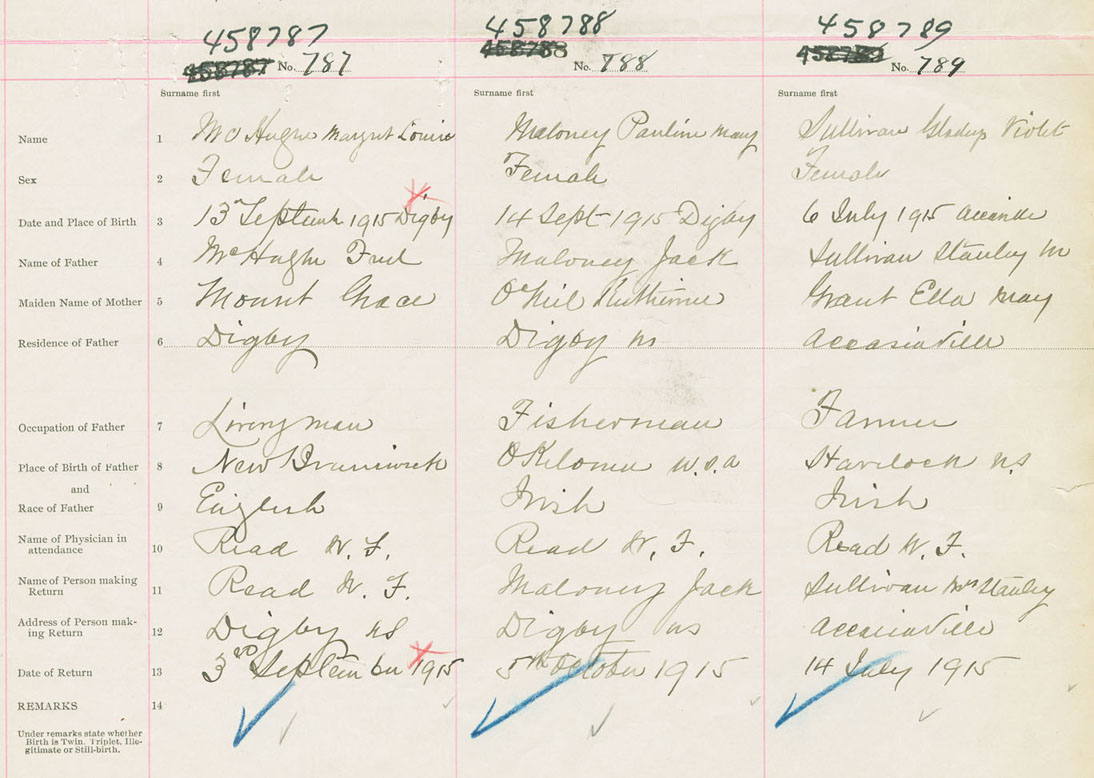 458787 458788 458789
458787 No. 787 458788 No. 788 458789 No. 789
Surname first Surname first Surname first
Name 1 McHughe Margret Louise Maloney Pauline Mary Sullivan Gladys Violet
Sex 2 Female Female Female
Date and Place of Birth 3 13 September 1915 Digby 14 Sept 1915 Digby 6 July 1915
Name of Father 4 McHughe Fred Maloney Jack Sullivan Stanley M
Maiden Name of Mother 5 Mount Grace O'Neil Grant Ella May
Residence of Father 6 Digby Digby NS Accasiaville
Occupation of Father 7 Liveryman Fisherman Farmer
Place of Birth of Father 8 New Brunswick U.S.A Havilock N.S
and
Race of Father 9 English Irish Irish
Name of Physician in
attendance 10 Read W. F. Read W. F. Read W. F.
Name of Person making
Return 11 Read W. F. Maloney Jack Sullivan Mrs Stanley
Address of Person mak-
ing Return 12 Digby NS Digby NS Accasiaville
Date of Return 13 3rd September 1915 5th October 1915 14 July 1915
REMARKS 14
Under remarks state whether
Birth is Twin, Triplet, Ille-
gitimate or Still-birth.